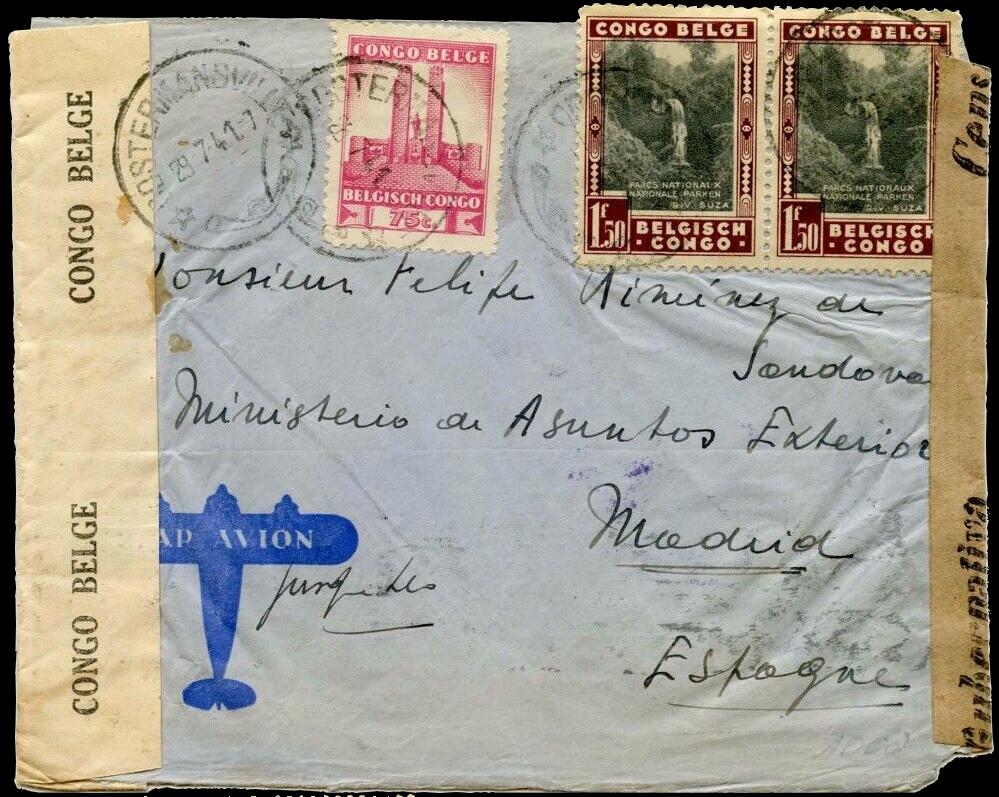 CONGO BELGE
CONGO BELGE
29.7.41-7
CONGO BELGE
BELGISCH CONGO
75c.
CONGO BELGE
PARCS NATIONAUX
NATIONALE PARKEN
RIV. SUZA
1f.50
BELGISCH
CONGO
CONGO BELGE
PARCS NATIONAUX
NATIONALE PARKEN
RIV. SUZA
1f.50
BELGISCH
CONGO
onsieur Felipe Ximénez de
Sandova
Ministerio de Asuntos Exterior
Madrid
Espagne
AR AVION